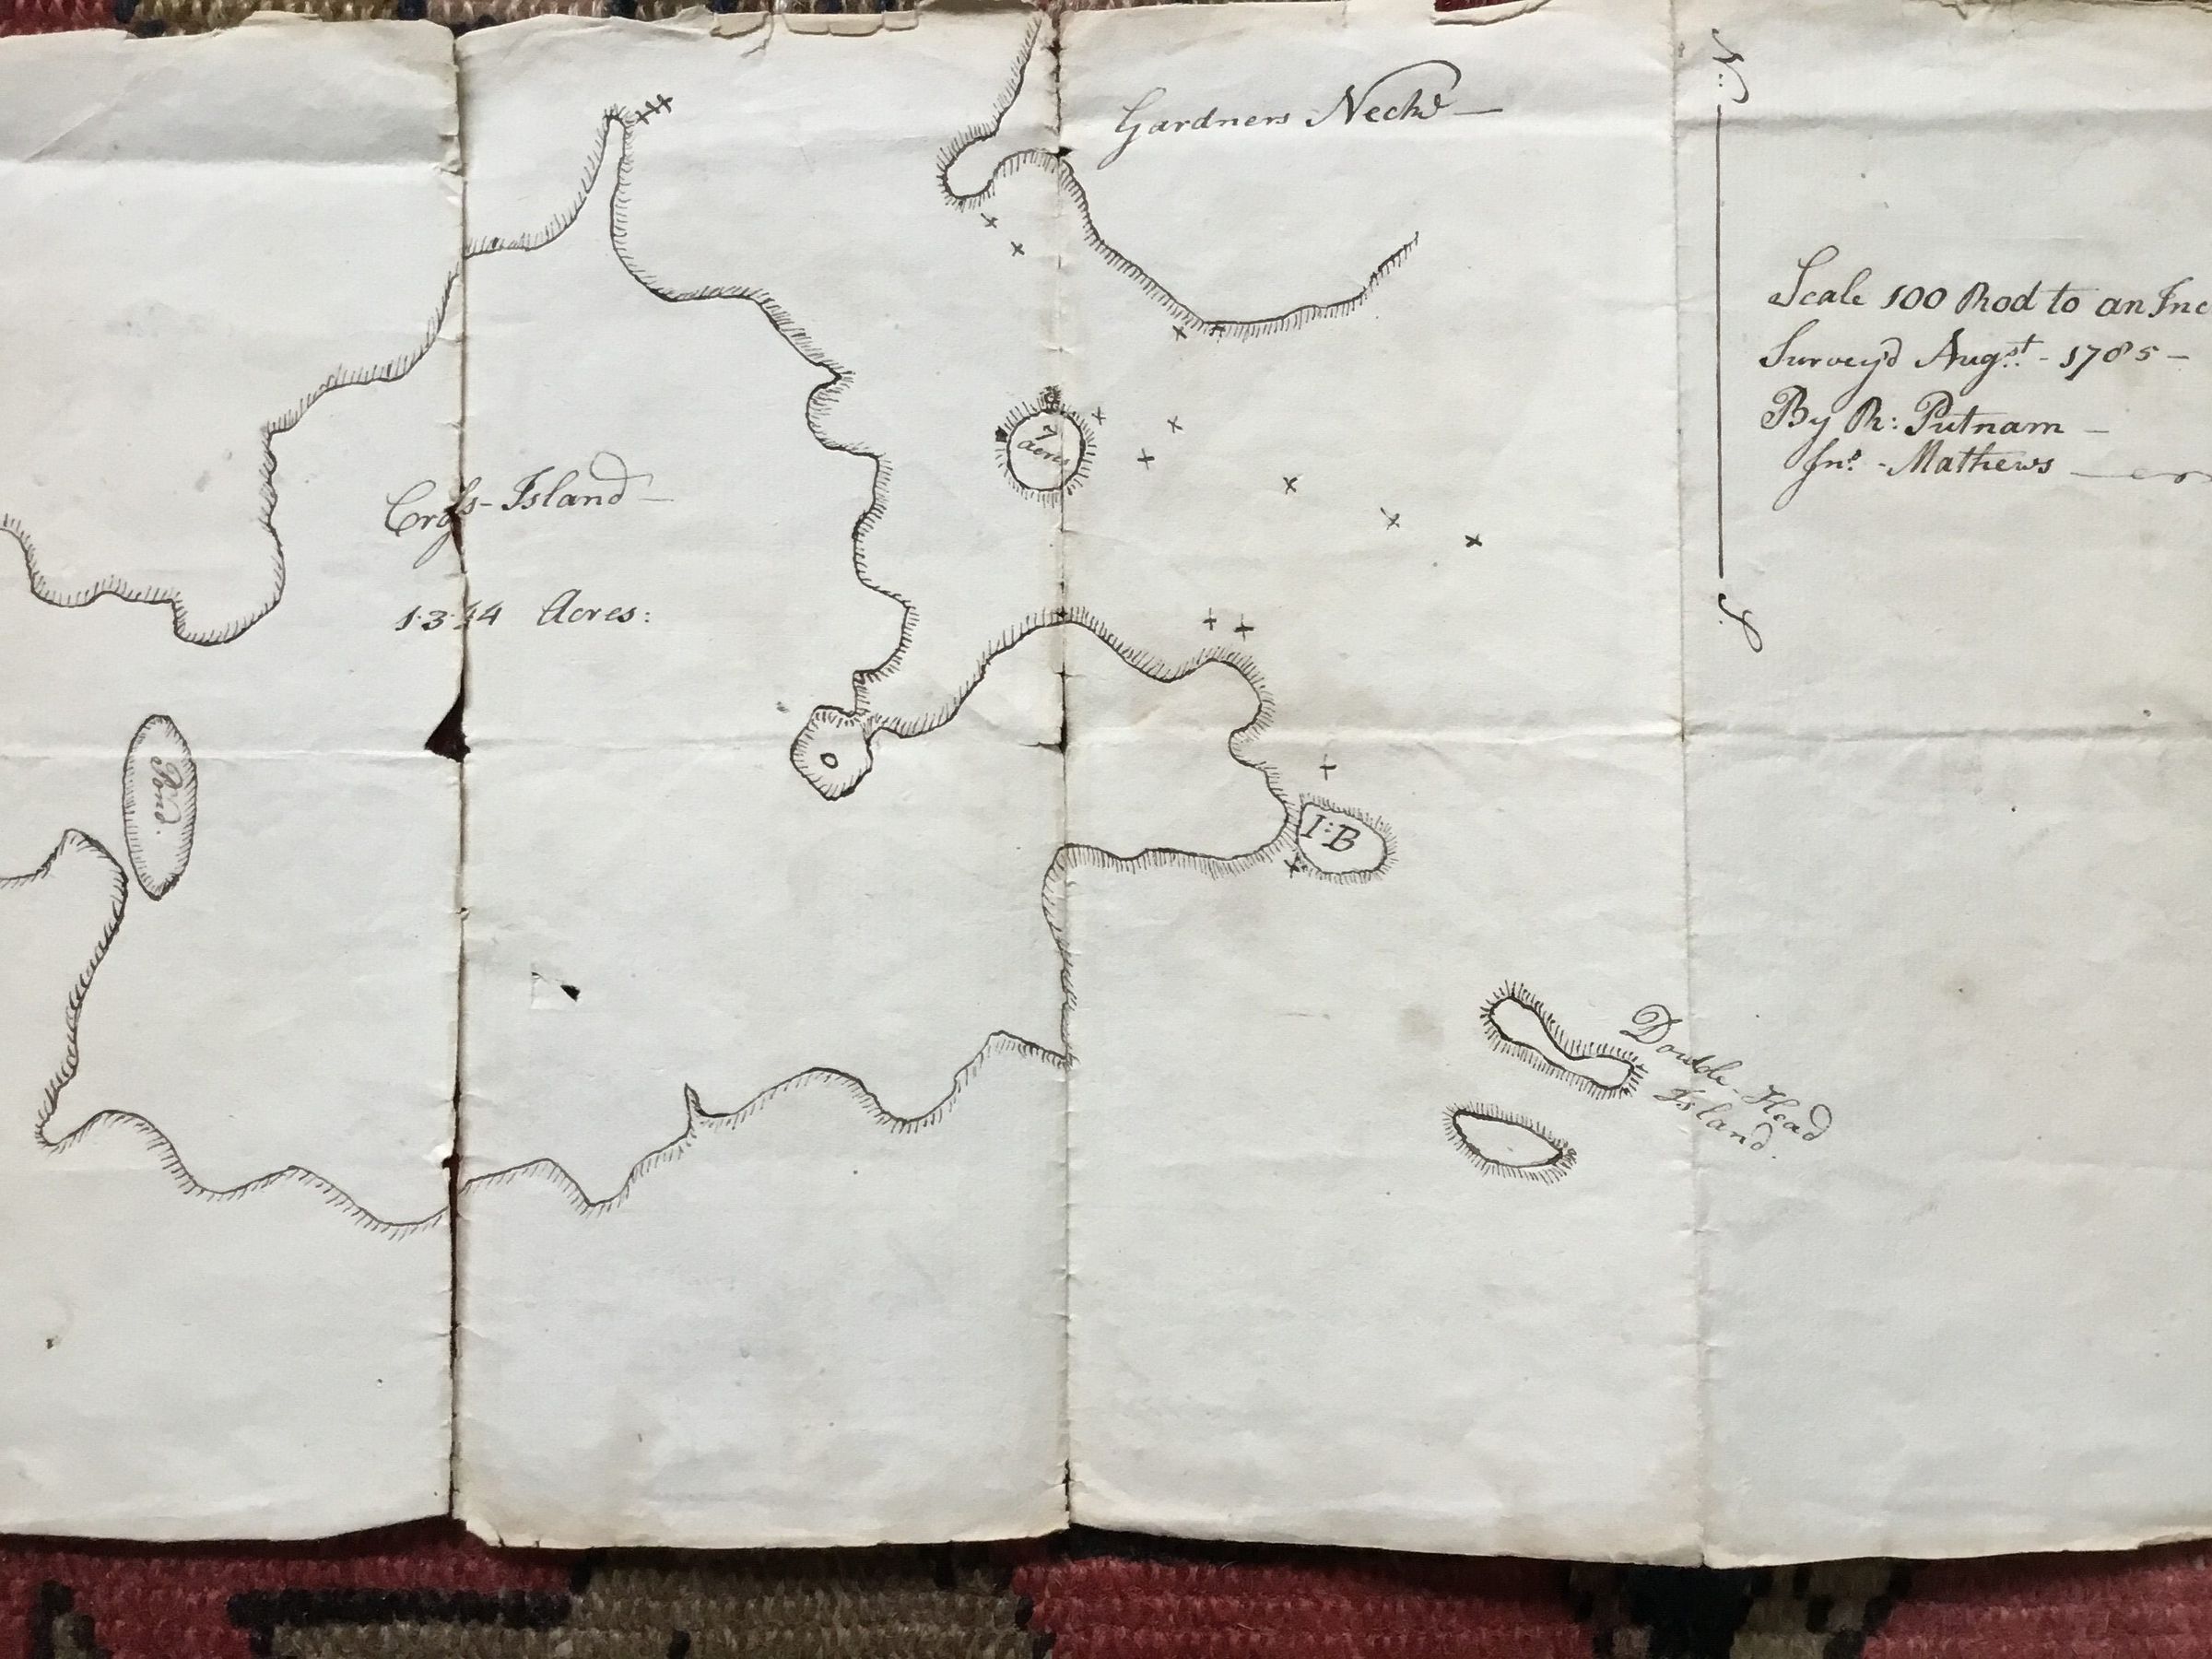 Gardners Neck
N:
Scale 100 Rod to an Inc
Survey'd Augst. - 1785 -
By R: Putnam -
Jno. - Mathews
7
acres
Cross-Island
Acres:
S.
Pond.
I:B
Double-Head
Island.